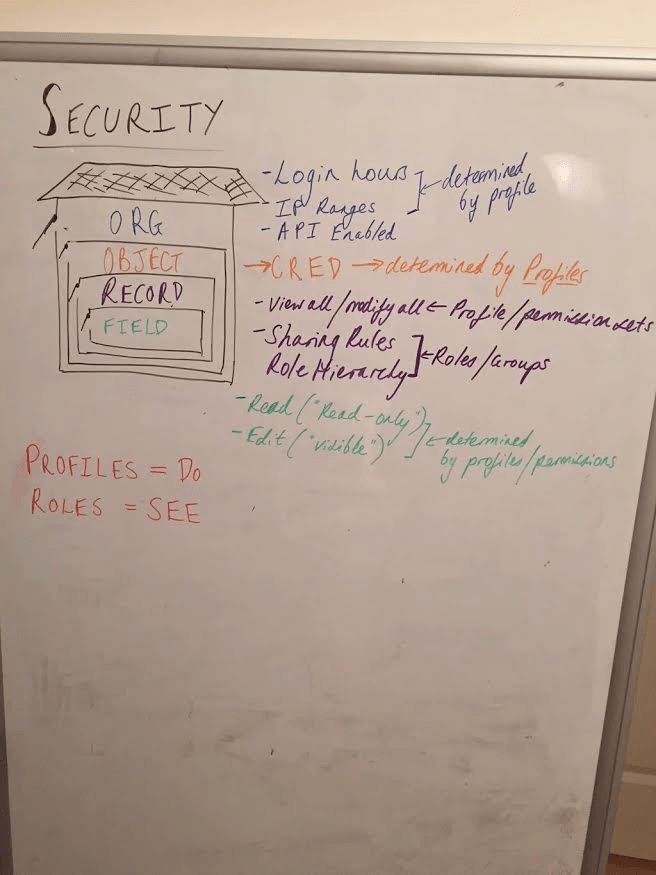 SECURITY
ORG
OBJECT
RECORD
FIELD
- Login hours
- IP Ranges
- API Enabled
← determined
by profile
→ CRED → determined by Profiles
- View all/modify all ← Profile/permission sets
- Sharing Rules
Role Hierarchy
← Roles/Groups
- Read ("Read-only")
- Edit ("visible")
← determined
by profiles/permissions
PROFILES = DO
ROLES = SEE